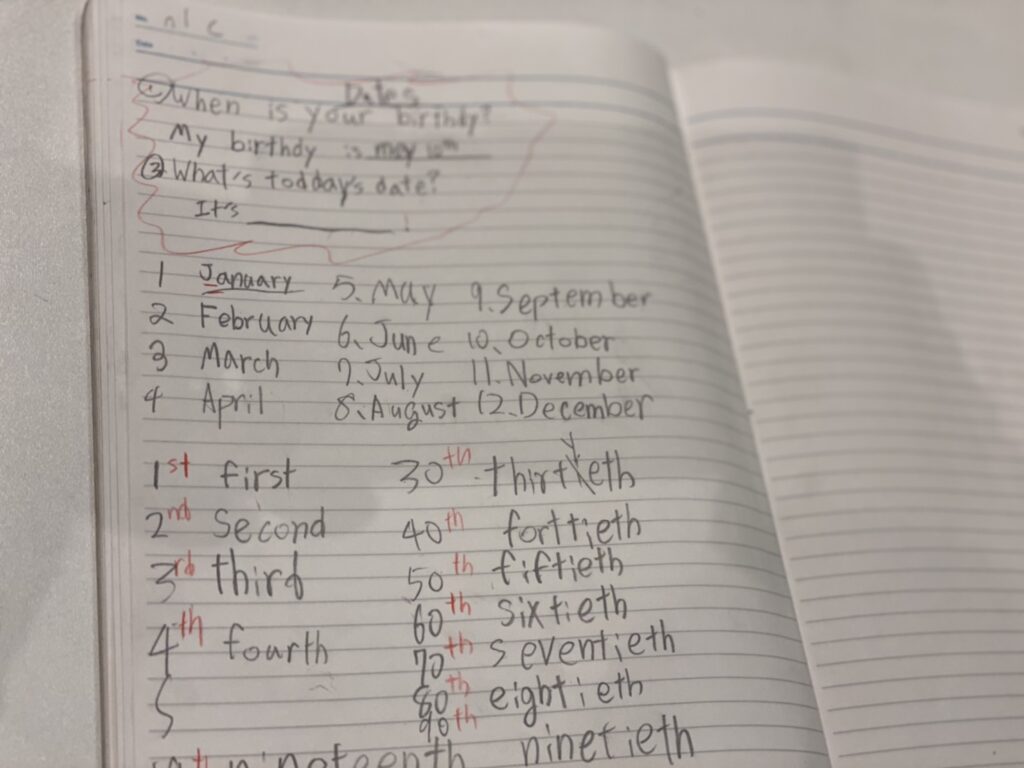 Dates
① When is your birthdy?
My birthdy is may 10th
② What's todday's date?
It's
1 January 5. May 9. September
2 February 6. June 10. October
3 March 7. July 11. November
4 April 8. August 12. December
1st first 30th thirtieth
2nd Second 40th forttieth
3rd third 50th fiftieth
4th fourth 60th sixtieth
70th seventieth
80th eightieth
90th ninetieth
nineteenth